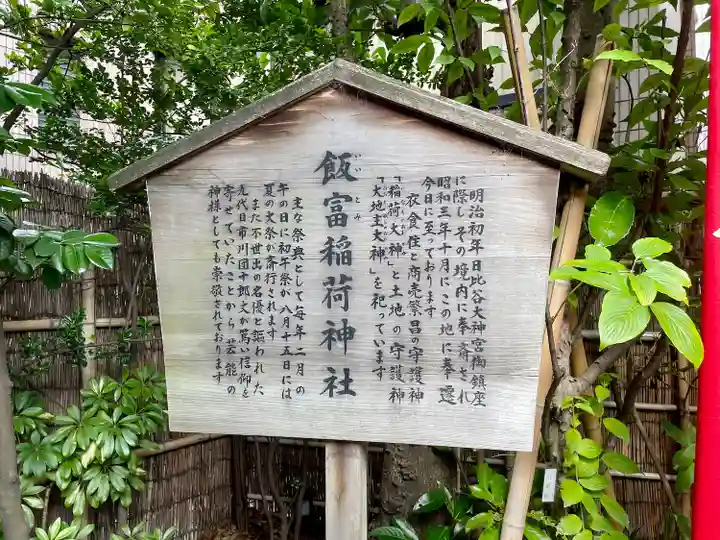 明治初年日比谷大神宮御鎮座
に際し その境内に奉斎され
昭和三年十月にこの地に奉遷
今日に至っております
衣食住と商売繁昌の守護神
「稲荷大神」と土地の守護神
「大地主大神」を祀っています
飯富稲荷神社
いいとみ
主な祭典として毎年二月の
午の日に初午祭が八月十五日には
夏の大祭が斎行されます
また不世出の名優と謳われた
九代目市川団十郎丈が篤い信仰を
寄せていたことから 芸能の
神様としても崇敬されております